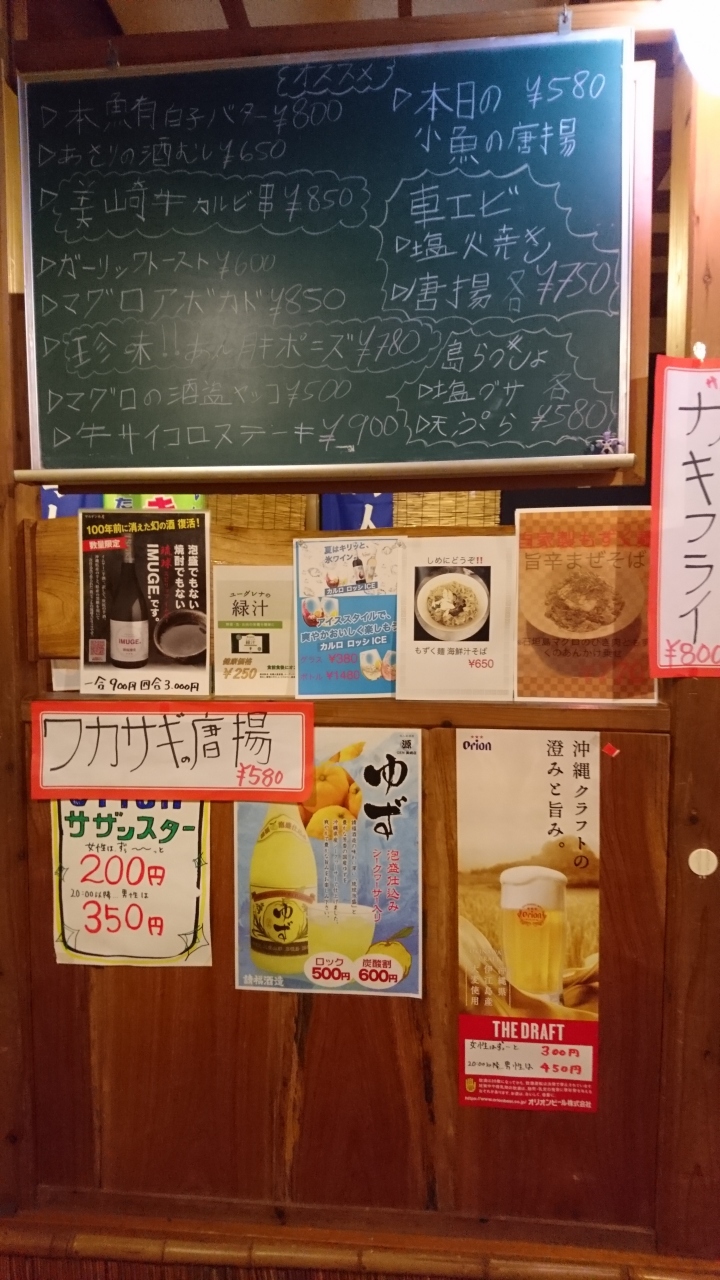 オススメ
▷本鮪有白子バター¥800
▷あさりの酒むし¥650
▷美崎牛カルビ串¥850
▷ガーリックトースト¥600
▷マグロアボカド¥850
▷珍味!!あん肝ポニズ¥780
▷マグロの酒盗ヤッコ¥500
▷牛サイコロステーキ¥900
▷本日の ¥580
小魚の唐揚
車エビ
▷塩火焼き
▷唐揚 各¥750
島らっきょ
▷塩グサ 各
▷天ぷら ¥580
100年前に消えた幻の酒 復活!
数量限定
泡盛でもない
焼酎でもない
IMUGE.です。
IMUGE.
一合900円 四合3.000円
ユーグレナの
緑汁
¥250
夏はキリッと、
氷ワイン
カルロ ロッシ ICE
アイススタイルで、
爽やかおいしく楽しもう
カルロ ロッシ ICE
¥380
¥1480
しめにどうぞ!!
もずく麺 海鮮汁そば
¥650
旨辛まぜそば
カキフライ
¥800
ワカサギの唐揚
¥580
サザンスター
女性はずっ〜と
200円
20:00以降 男性は
350円
源
ゆず
泡盛仕込み
シークヮーサー入り
ゆず
ロック
500円
炭酸割
600円
請福酒造
Orion
沖縄クラフトの
澄みと旨み。
Orion
THE DRAFT
女性はずーっと 300円
20:00以降 男性は 450円
オリオンビール株式会社